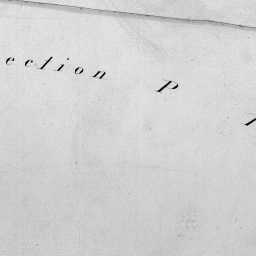 ection P